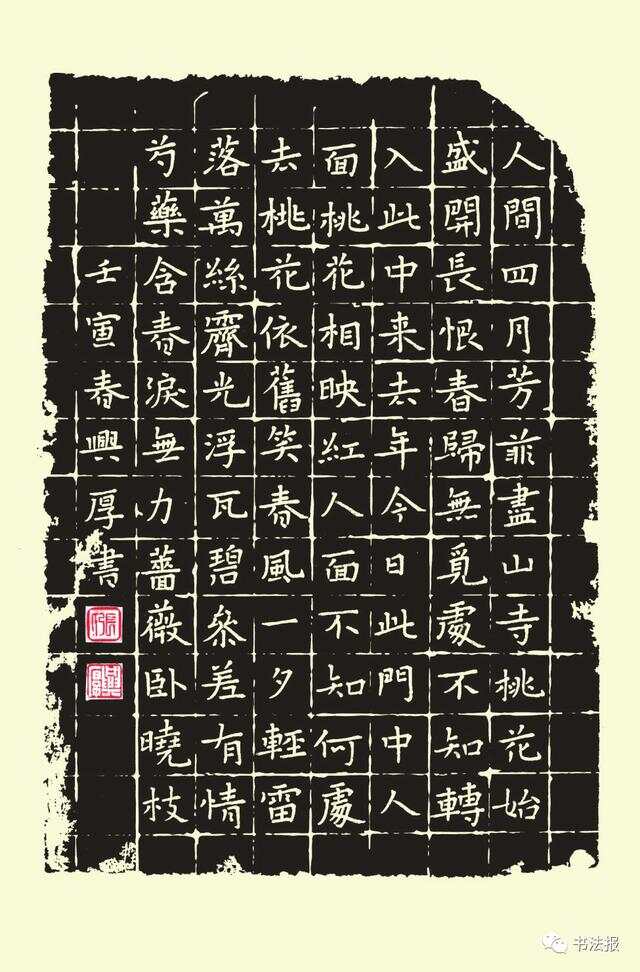 人間四月芳菲盡山寺桃花始
盛開長恨春歸無覓處不知轉
入此中来去年今日此門中人
面桃花相映紅人面不知何處
去桃花依舊笑春風一夕輕雷
落萬絲霽光浮瓦碧參差有情
芍藥含春淚無力薔薇卧曉枝
壬寅春興厚書
书法报